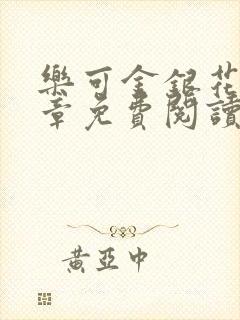 樂可金銀花
章免費閱讀
黃亞中